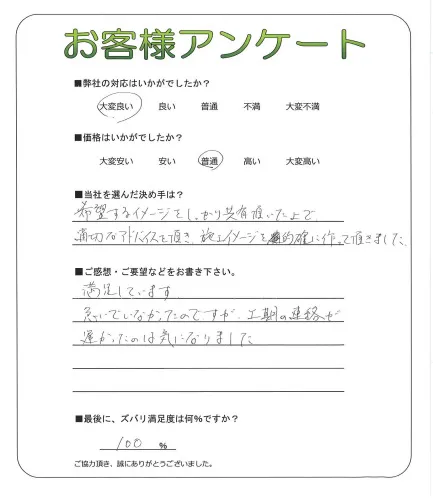 お客様アンケート
■弊社の対応はいかがでしたか?
大変良い 良い 普通 不満 大変不満
■価格はいかがでしたか?
大変安い 安い 普通 高い 大変高い
■当社を選んだ決め手は?
希望するイメージをしっかり共有頂いた上で、
適切なアドバイスを頂き、施工イメージを的確に作って頂きました。
■ご感想・ご要望などをお書き下さい。
満足しています
急いでいなかったのですが、工期の連絡が
遅かったのは気になりました
■最後に、ズバリ満足度は何%ですか?
100 %
ご協力頂き、誠にありがとうございました。